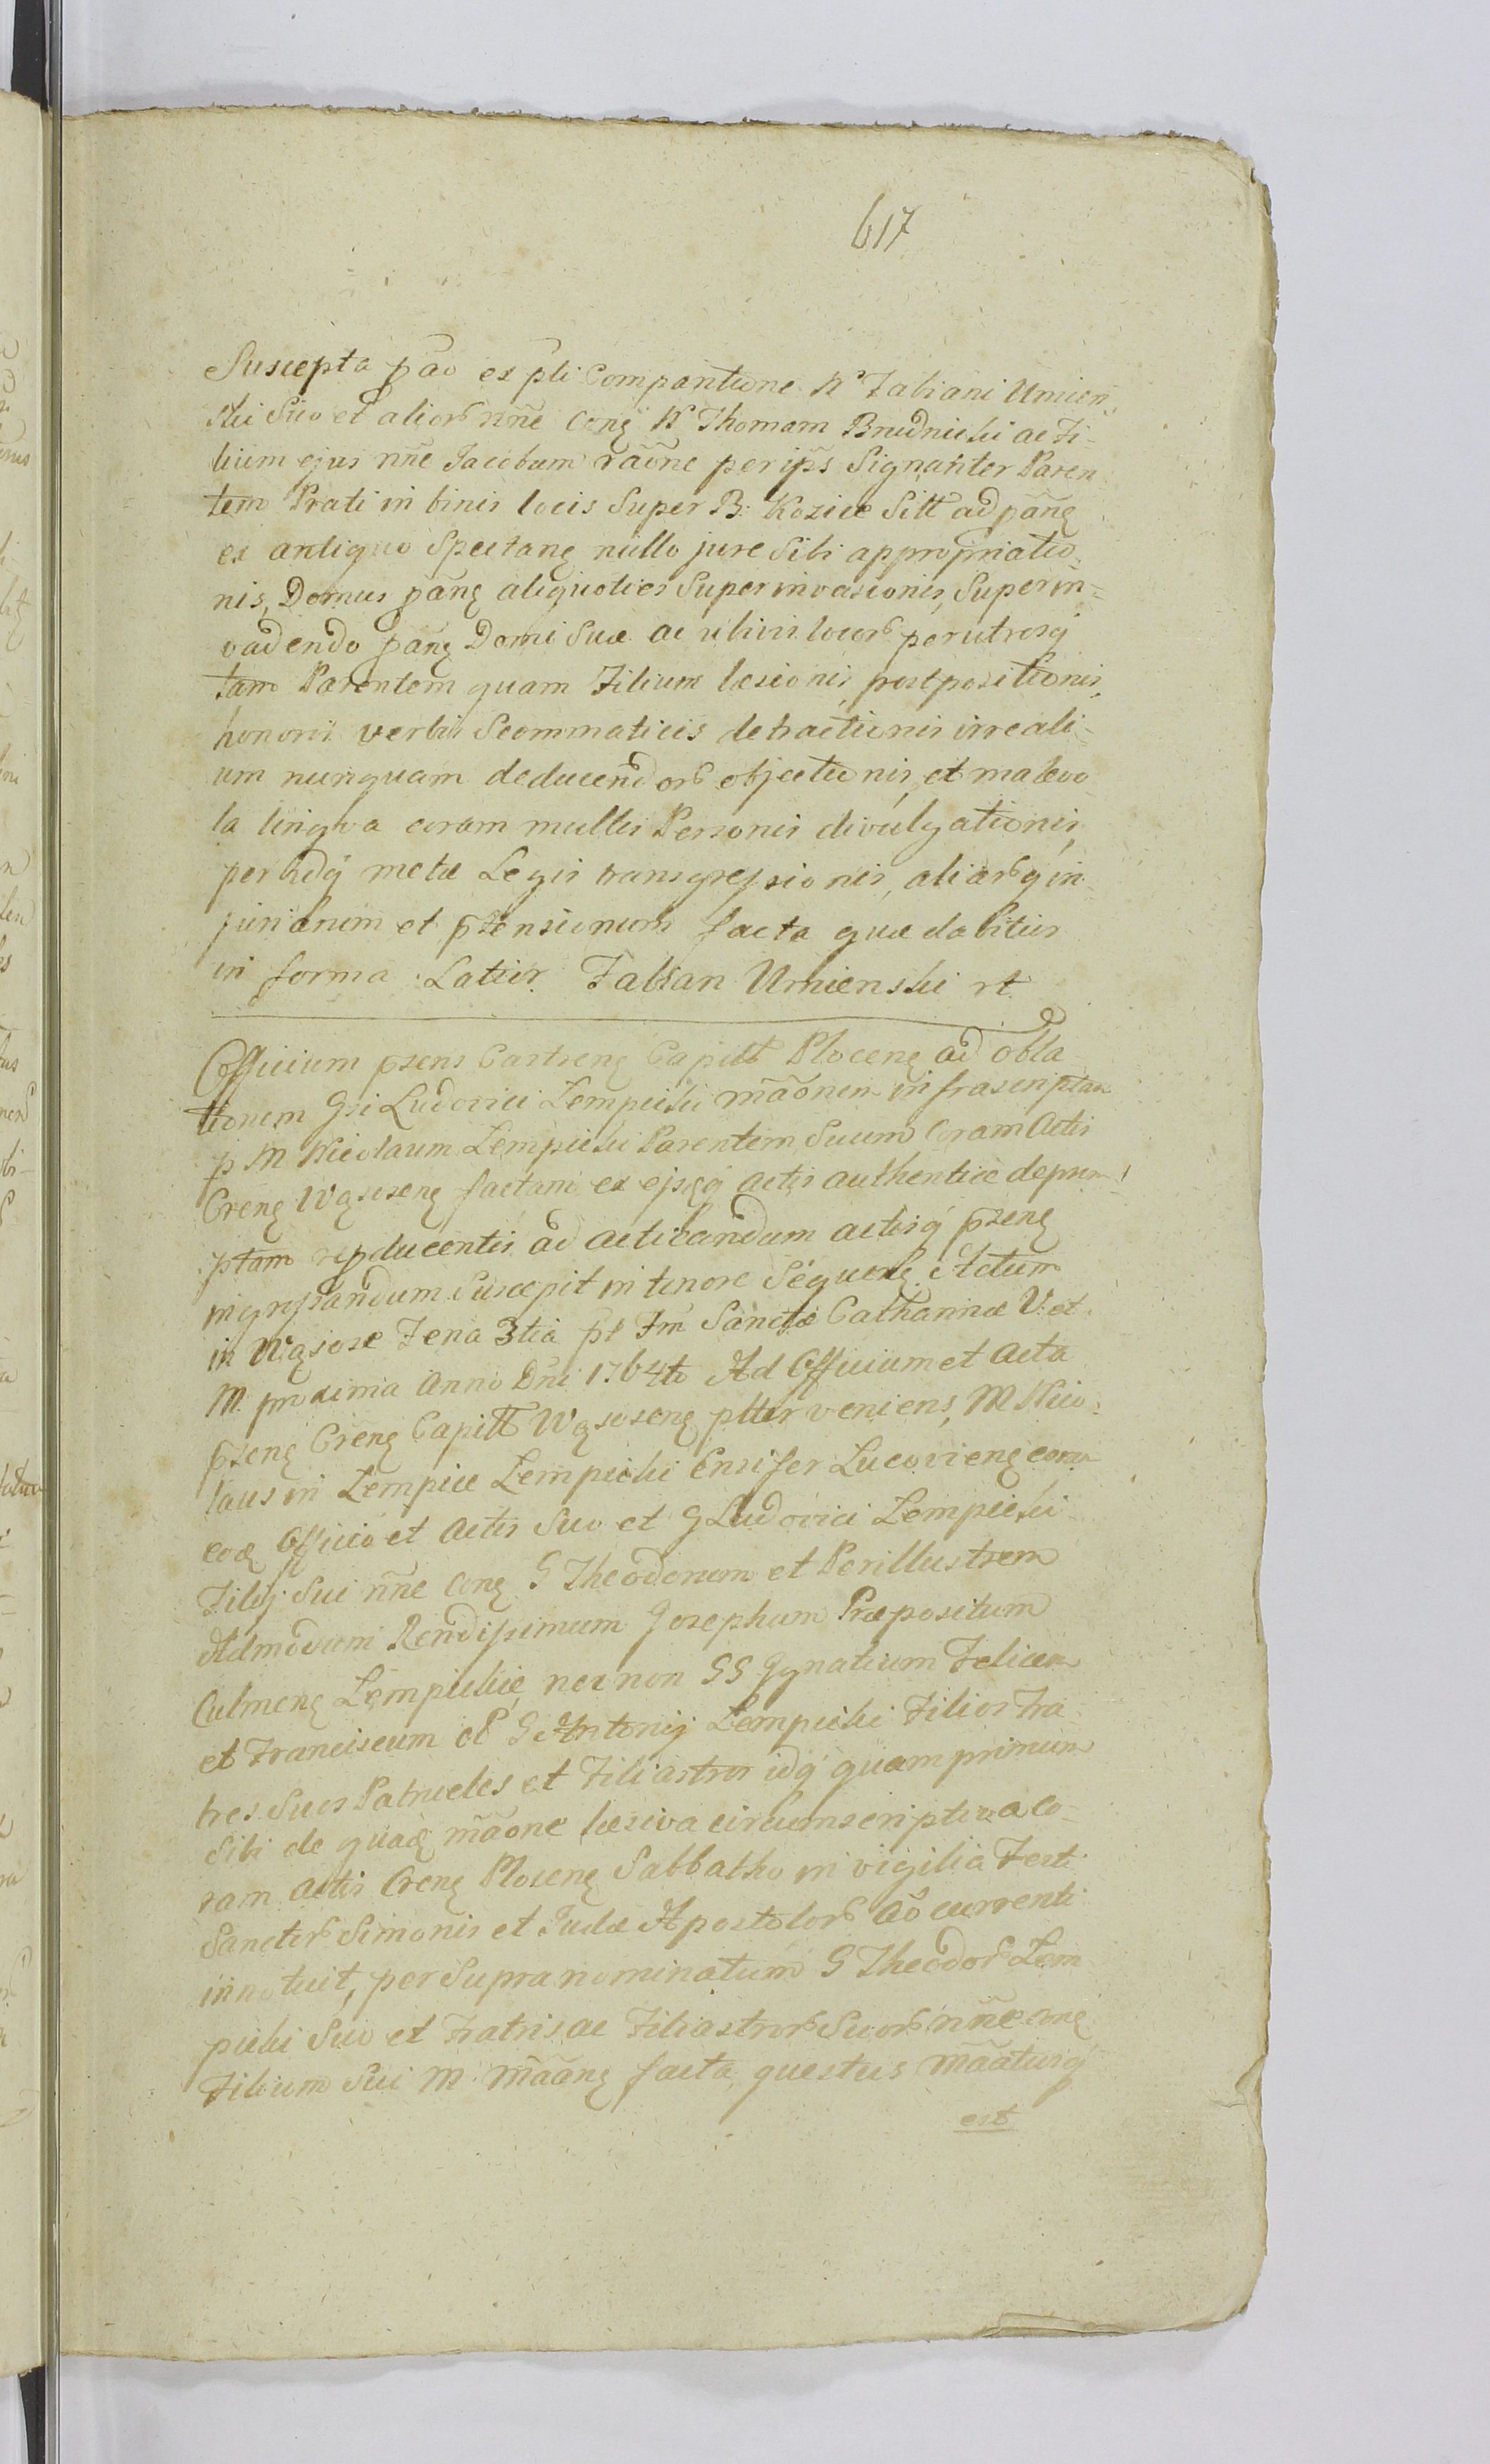 617
Suscepta pāo ex pli Comparitione N Fabiani Umien
ski Suo et alior nñe cong N Thomam Brudnicki ac Fi-
lium ejus nñe Jacobum raōne per ips Signanter Paren
tem Prati in binis locis Super B: Kozice Sitt ad pang
ex antiquo Spectang nullo jure Sibi appropriatio-
nis, Domus pang aliquoties Superinvasionis, Superin-
vadendo pang Domi Suæ ac ubivis locor per utrosq
tam Parentem quam Filium læsionis, postpositionis,
honoris verbis Scommaticis detractionis irreali-
um nunquam deducendor objectionis, et malevo
la lingva coram multis Personis divulgationis,
per hidq metæ Legis transgressionis, aliarq in-
juriarum et ptensionum facta quæ dabitur
in forma Latior. Fabian Umienski rt
Officium psens Castreng Capitt Ploceng ad obla
tionem Gsi Ludovici Lempicki mãonem infrascriptam
p M Nicolaum Lempicki Parentem Suum Coram Actis
Creng Wąsoseng factam ex ejsgq actis authentice deprom
ptam repducentis ad acticandum actisq pseng
ingrossandum Suscepit in tenore Sequeng Actum
in Wąsosze Feria 3tia pt Fm Sanctæ Catharinæ V. et
M. proxima Anno Dni 1764to Ad Officium et Acta
pseng Creng Capitt Wąsoseng plttr veniens, M Nico-
laus in Lempice Lempicki Ensifer Lucovieng coram
eoq Officio et Actis Suo et G Ludovici Lempicki
Filij Sui nñe cong G Theodorum et Perillustrem
Admodum Rendissimum Josephum Præpositum
Culmeng Lempickie, nec non GG Ignatium Felicem
et Franciscum ol G Antonij Lempicki Filios Fra-
tres Suos Patrueles et Filiastros idq quam primum
Sibi de quaq mãone læsiva circumscriptiva co-
ram actis Creng Ploceng Sabbatho in vigilia Festi
Sanctor Simonis et Judæ Apostolor Aō currenti
innotuit, per Supranominatum G Theodor Lem
picki Suo et Fratris ac Filiastror Suor nñe cong
Filium Sui M Mãang facta, questus mãaturq
est